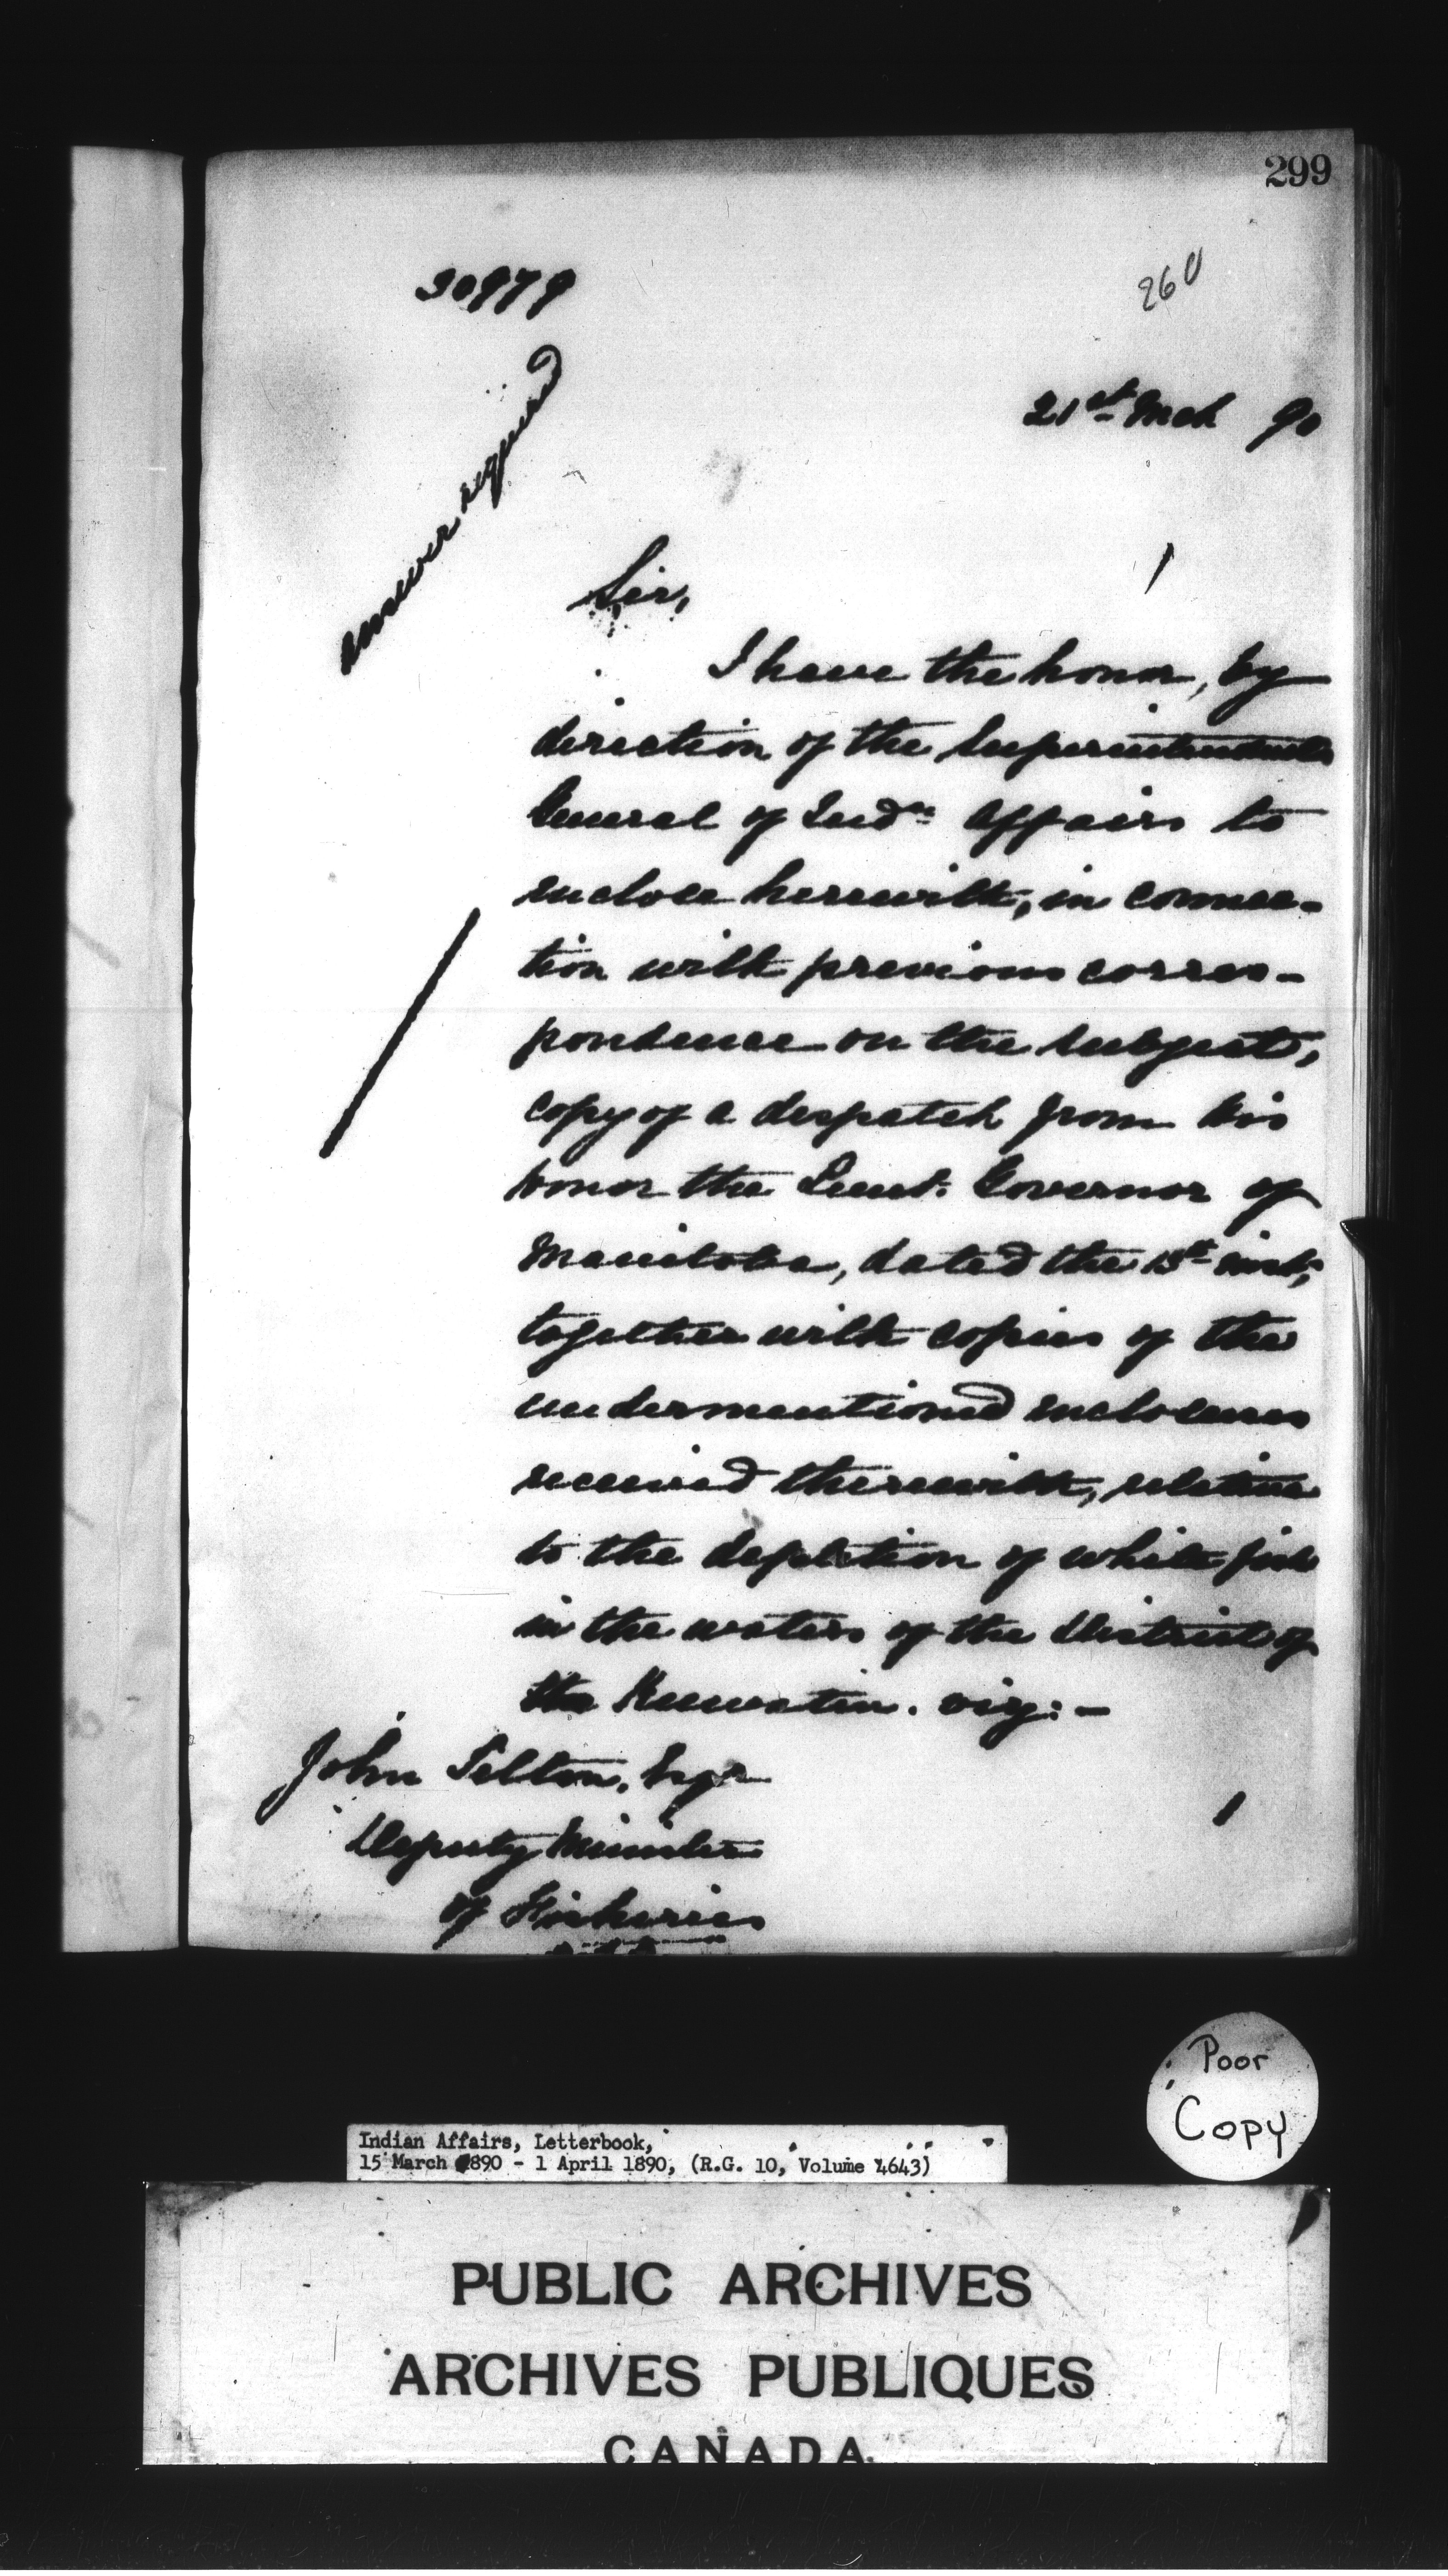 299
30979
260
21st Mch 90
answer required
Sir,
I have the honor, by
direction of the Superintendent
General of Indn Affairs to
enclose herewith, in connec-
tion with previous corres-
pondence on the subject,
copy of a despatch from his
honor the Lieut. Governor of
Manitoba, dated the inst,
together with copies of the
undermentioned enclosures
received therewith, relative
to the depletion of white fish
in the waters of the District of
the Keewatin. viz:-
John Tilton, Esqr
Deputy Minister
of Fisheries
Poor
Copy
Indian Affairs, Letterbook,
15 March 1890 - 1 April 1890, (R.G. 10, Volume 4643)
PUBLIC ARCHIVES
ARCHIVES PUBLIQUES
CANADA